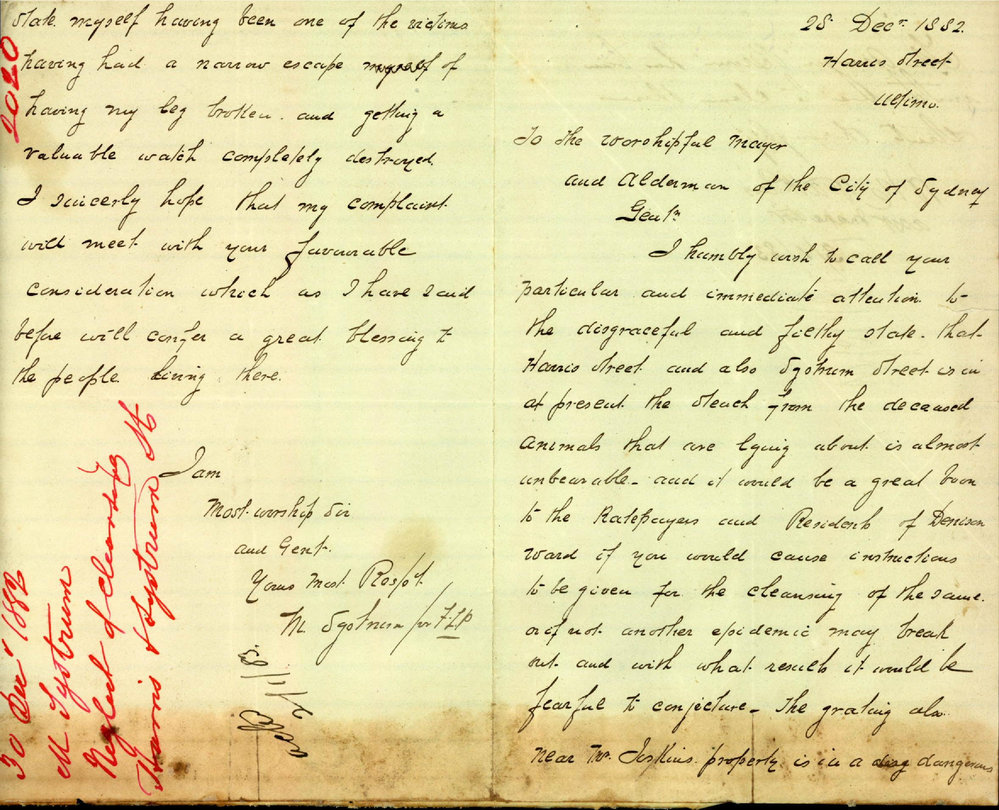 28 Decr. 1882.
Harris Street
Ultimo.
To the Worshipful Mayor
and Alderman of the City of Sydney
Gentn
I humbly wish to call your
particular and immediate attention to
the disgraceful and filthy state that
Harris Street and also Systrum Street is in
at present the stench from the deceased
animals that are lying about is almost
unbearable - and it would be a great boon
to the Ratepayers and Residents of Denison
Ward if you would cause instructions
to be given for the cleansing of the same.
or if not another epidemic may break
out and with what results it would be
fearful to conjecture - The grating also
near Mr. Jeskins property is in a dangerous
state myself having been one of the victims
having had a narrow escape myself of
having my leg broken and getting a
valuable watch completely destroyed.
I sincerly hope that my complaint
will meet with your favourable
consideration which as I have said
before will confer a great blessing to
the people living there.
I am
Most worship Sir
and Gent.
Yours most Respct
M. Systrum / for FLP
2/1/83
2020
30 Decr 1882
M Systrum
Neglect of cleansing
Harris & Systrum St